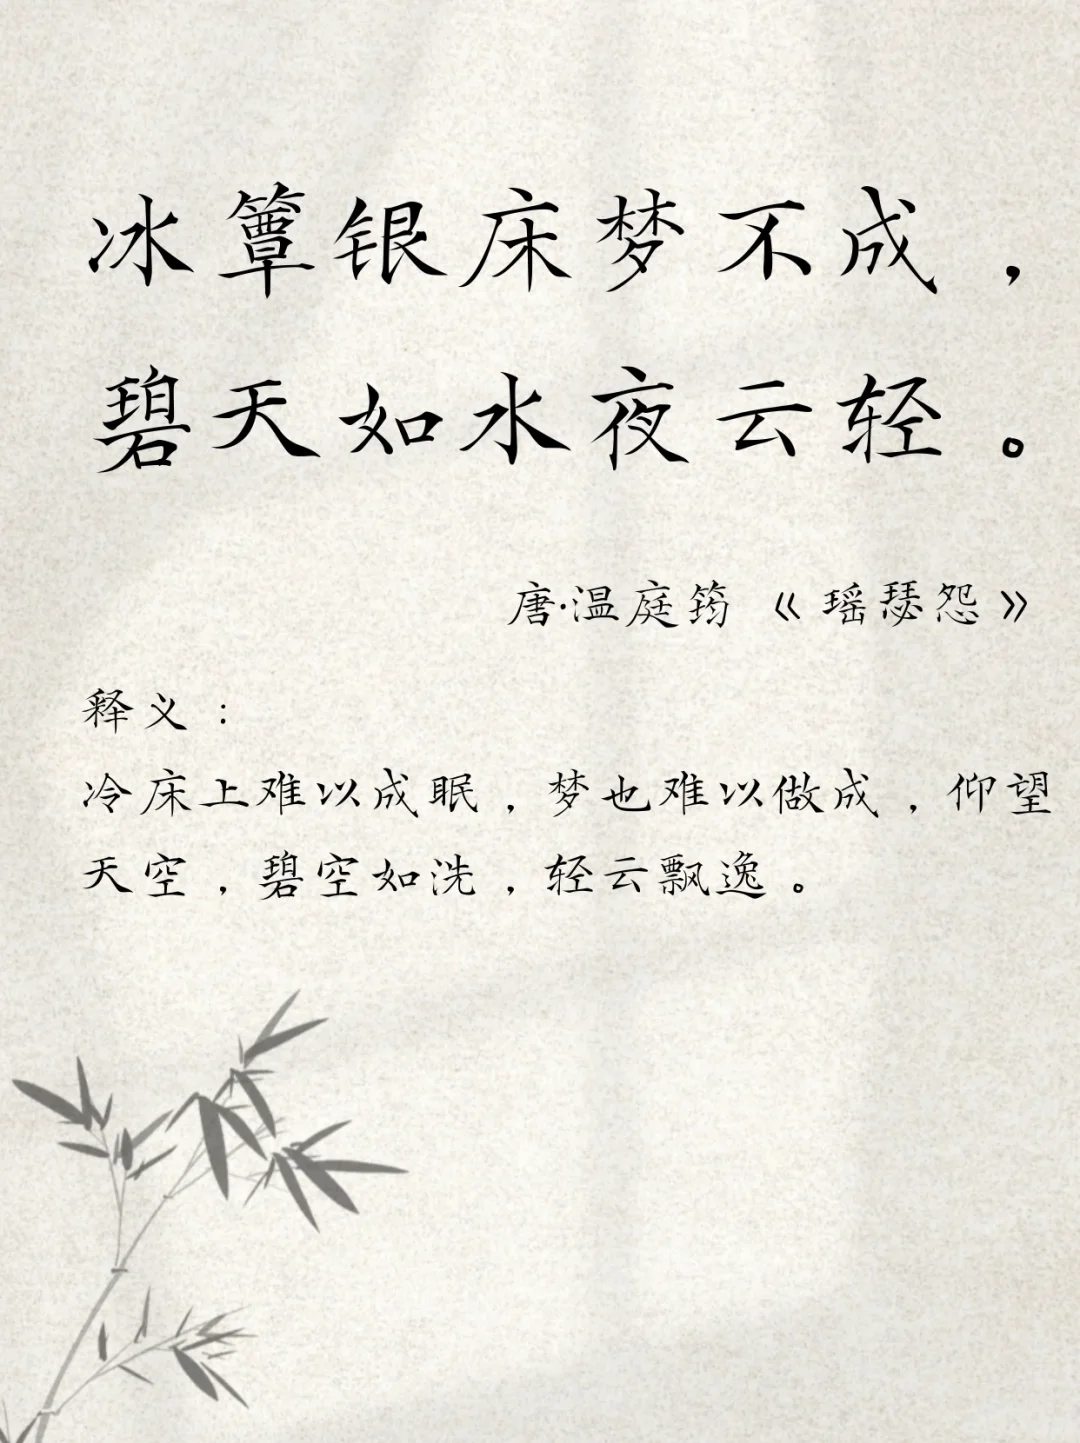 冰簟银床梦不成，
碧天如水夜云轻。
唐·温庭筠《瑶瑟怨》
释义：
冷床上难以成眠，梦也难以做成，仰望
天空，碧空如洗，轻云飘逸。